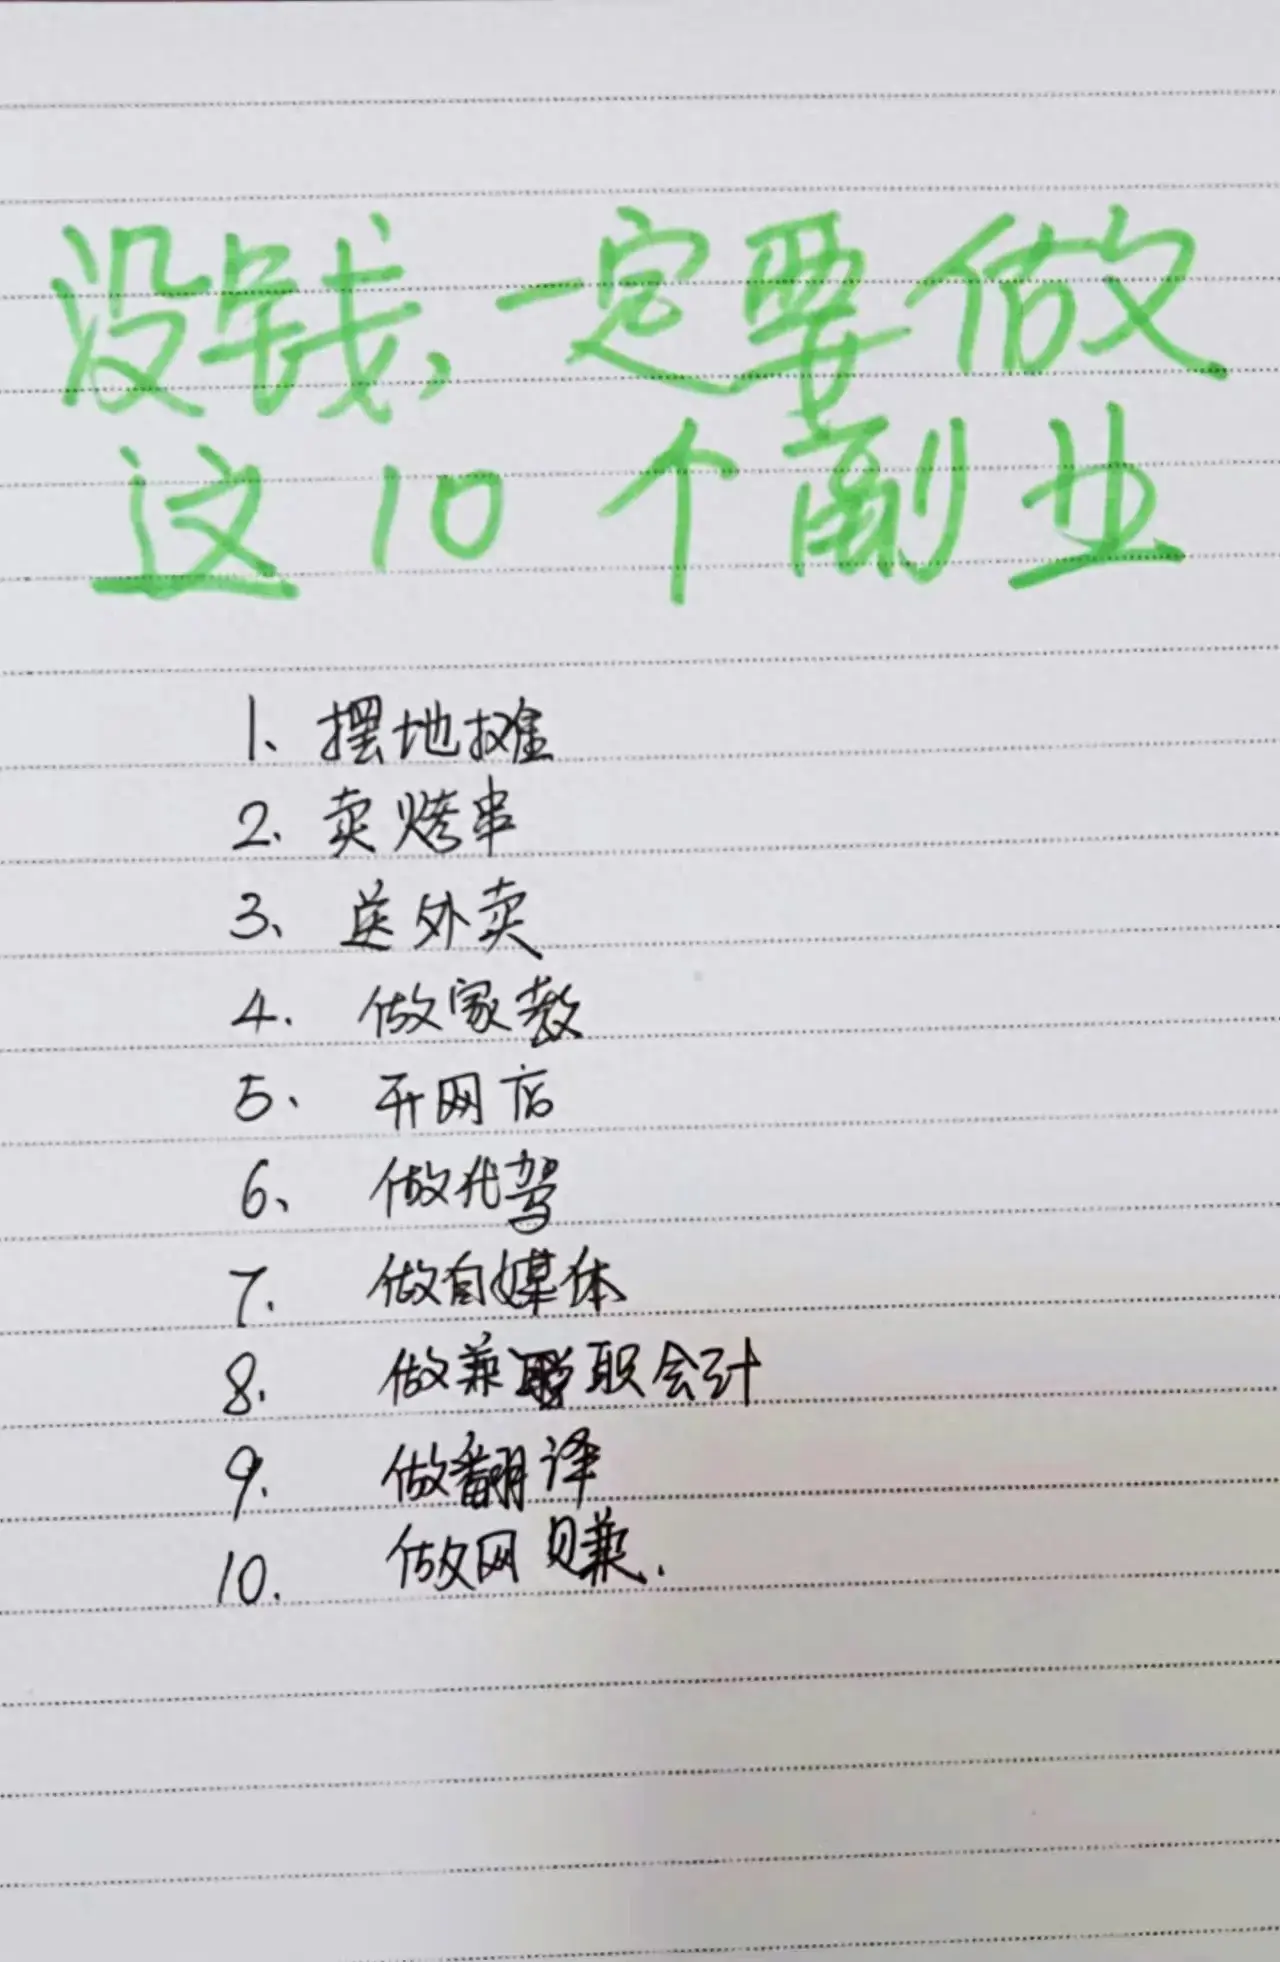 没钱,一定要做
这10个副业
1、摆地摊
2、卖烤串
3、送外卖
4、做家教
5、开网店
6、做代驾
7、做自媒体
8、做兼职会计
9、做翻译
10、做网赚.